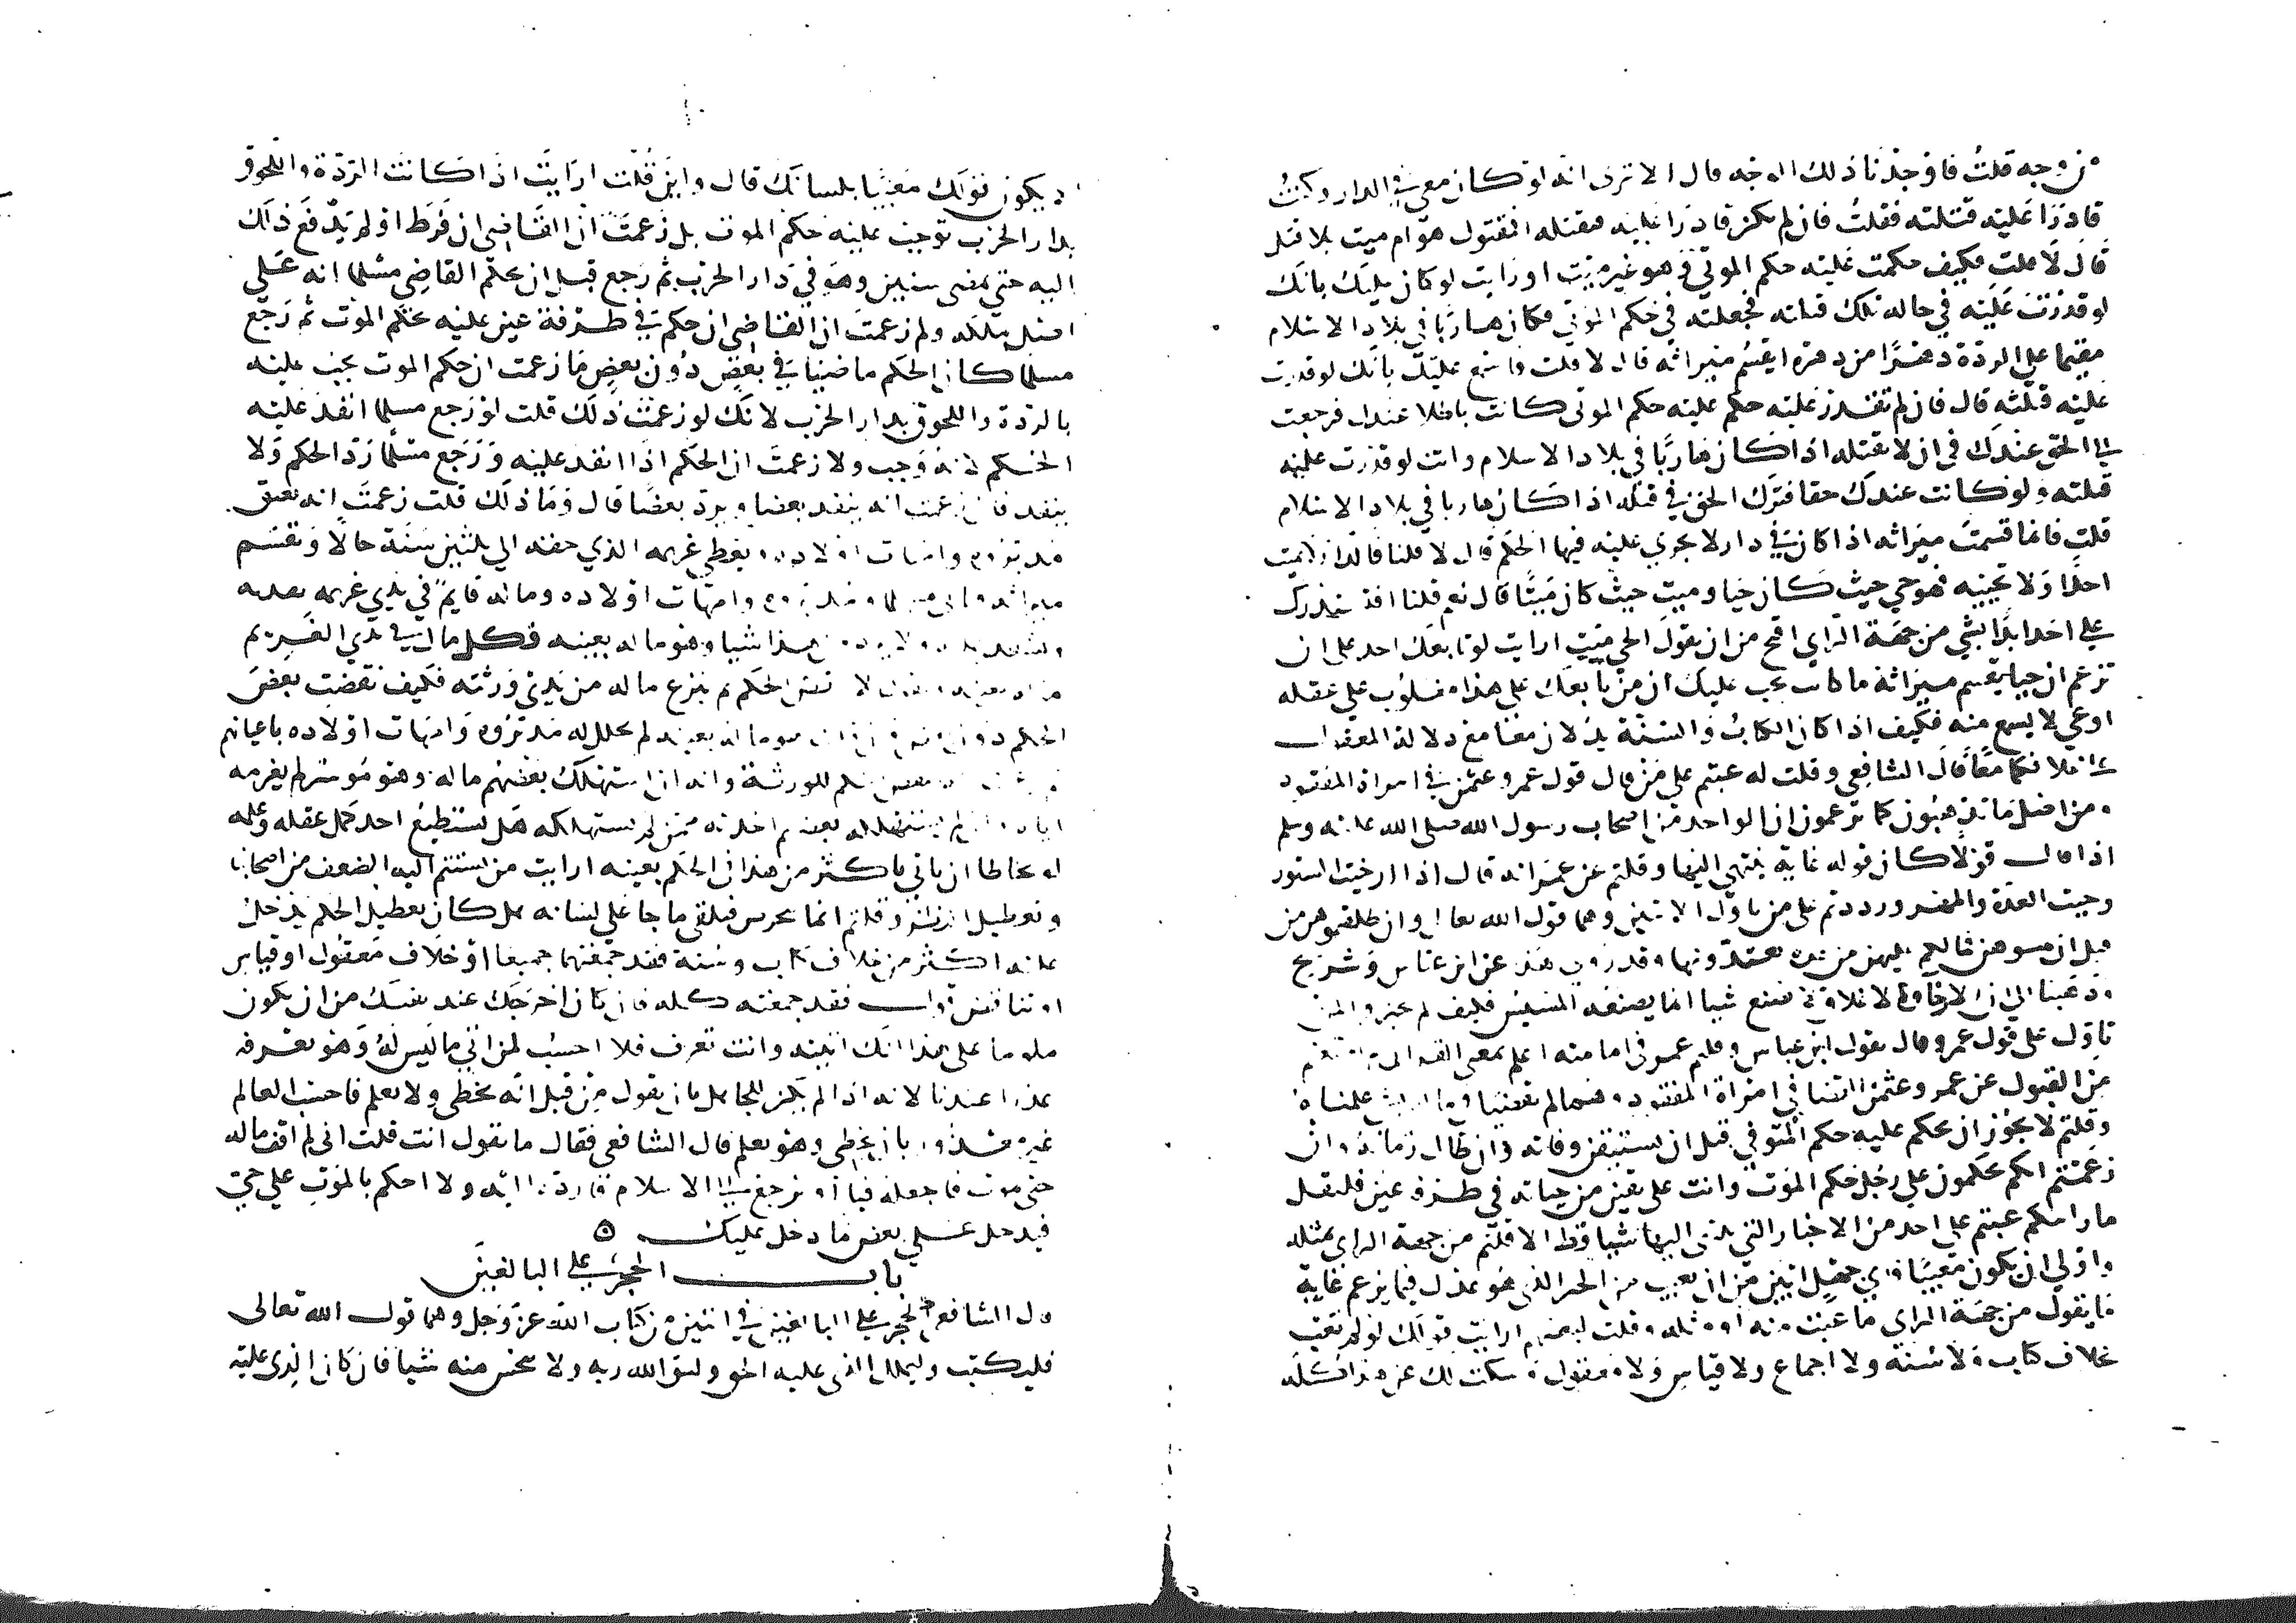 من وجه قلتُ فاوجدنا ذلك الوجه قال الا ترى انه لو كان معي في الدار وكنتُ
قادرًا عليه قتلته فقلتُ فان لم تكن قادرًا عليه فقتله المقتول هو ام ميت بلا قتل
قال لا قلت فكيف حكمت عليه حكم الموتى وهو غير ميت او رايت لو كان علتك بانك
لو قدرت عليه في حاله تلك قتلته فجعلته في حكم الموتى فكان هاربًا في بلاد الاسلام
مقيما على الردة دهرًا من دهره ايقسم ميراثه قال لا قلت فاسمع علتك بانك لو قدرت
عليه قتلته قال فان لم تقدر عليه حكم عليه حكم الموتى كانت باطلا عندك فرجعت
الى الحق عندك في ان لا تقتله اذا كان هاربًا في بلاد الاسلام وانت لو قدرت عليه
قتلته ولو كانت عندك حقا فترك الحق في قتله اذا كان هاربا في بلاد الاسلام
قلت فانما قسمت ميراثه اذا كان في دار لا يجري عليه فيها الحكم قال لا قلنا فالدار لا تميت
احدًا ولا تحييه فهو حي حيث كان حيا وميت حيث كان ميتًا قال نعم قلنا افتستدرك
على احد ابدًا بشي من جهة الراي اقبح من ان يقول الحي ميت ارايت لو تابعك احد على ان
تزعم ان حيا يقسم ميراثه ما كان يجب عليك ان من تابعك على هذا مغلوب على عقله
او غبي لا يسمع منه فكيف اذا كان الكتابُ والسنة يدلان معًا مع دلالة المعقول
على خلافكما معًا قال الشافعي وقلت له عبتم على من قال قول عمر وعثمن في امراة المفقود
ومن اصل ما تذهبون كما تزعمون ان الواحد من اصحاب رسول الله صلى الله عليه وسلم
اذا قال قولًا كان قوله غاية ينتهي اليها وقلتم عن عمر انه قال اذا ارخيت الستور
وجبت العدة والمهر ورددتم على من تاول الايتين وهما قول الله تعالى وان طلقتموهن من
قبل ان تمسوهن فما لكم عليهن من عدة تعتدونها وقد روي هذا عن ابن عباس وشريح
وذهبنا الى ان الارخاء والاغلاق لا يصنع شيا انما يصنعه المسيس فكيف لم تجيزوا لمن
تاول على قول عمر وقال بقول ابن عباس وقلتم عمر في امامته اعلم بمعنى القران ثم امتنعتم
من القبول عن عمر وعثمن القضا في امراة المفقود وهما لم يقضيا في ماله بشي علمناه
وقلتم لا يجوز ان يحكم عليه حكم المتوفى قبل ان تستيقن وفاته وان طال زمانه وان
زعمتم انكم تحكمون على رجل حكم الموت وانت على يقين من حياته في طرفة عين فلقل
ما رايتكم عبتم على احد من الاخبار التي انتهى اليها شيا قط الا قلتم من جهة الراي بمثله
واولى ان يكون معيبًا فاي جهل ابين من ان تعيب من الخبر الذي هو عندك فيما تزعم غاية
ما يقول من جهة الراي ما عبت منه او مثله وقلت لبعضهم ارايت قولك لو لم تعب
بخلاف كتاب ولا سُنة ولا اجماع ولا قياس ولا معقول وسكت لك عن هذا كله
الا يكون قولك معيبًا بلسانك قال واين قلت ارايت اذا كانت الردة واللحوق
بدار الحرب توجب عليه حكم الموت بل زعمت ان القاضي ان فرط او لم يدفع ذلك
اليه حتى يمضي سنين وهو في دار الحرب ثم رجع قبل ان يحكم القاضي مسلما انه على
اصل ملكه ولم زعمت ان القاضي ان حكم في طرفة عين عليه بحكم الموت ثم رجع
مسلما كان الحكم ماضيا في بعض دون بعض ما زعمت ان حكم الموت يجب عليه
بالردة واللحوق بدار الحرب لانك لو زعمت ذلك قلت لو رجع مسلما انفذ عليه
الحكم لانه وجب ولا زعمت ان الحكم اذا انفذ عليه ورجع مسلما رد الحكم ولا
ينفذ فانت زعمت انه ينفذ بعضا ويرد بعضا قال وما ذلك قلت زعمت انه يعتق
مدبروه وامهات اولاده ويعطى غريمه الذي حقه الى ثلثين سنة حالًا ويقسم
ميراثه فاتى مسلما ومدبروه وامهات اولاده وماله قايم في يدي غريمه يقر به
ويشهد عليه ولا يرد من هذا شيا وهو ماله بعينه فكل مال في يدي الغريم
ماله بعينه وتقول لا ينقض الحكم ثم ينزع ماله من يدي ورثته فكيف نقضت بعض
الحكم دون بعض قال قلت هو ماله بعينه لم يحلل له مدبروه وامهات اولاده باعيانهم
بعضهم للورثة وانه ان استهلك بعضهم ماله وهو موسر لم يغرمه
اياه وان لم يستهلكه بعضهم اخذته ممن لم يستهلكه هل يستطيع احد كمل عقله وعلمه
لو تخاطا ان ياتي باكثر من هذا في الحكم بعينه ارايت من نسبتم اليه الضعف من اصحابنا
وتعطيل النظر وقلتم انما يتخرص فيلقى ما جا على لسانه هل كان تعطيل الحكم يدخل
عليه اكثر من خلاف كتاب وسنة فقد جمعتهما جميعا او خلاف معقول او قياس
او تناقض قول فقد جمعته كله فان كان اخرجك عند نفسك من ان تكون
ملوما على هذا انك اتيته وانت تعرف فلا احسب لمن اتى ما ليس له وهو يعرفه
عذرا عندنا لانه اذا لم يكن للجاهل بان يقول من قبل انه يخطي ولا يعلم فاحسب العالم
غير معذور بان يخطي وهو يعلم قال الشافعي فقال ما تقول انت قلت اني لم اقف ماله
حتى يموت فاجعله فيا او يرجع الى الاسلام فارده اليه ولا احكم بالموت على حي
فيدخل علي بعض ما دخل عليك ه
باب الحجر على البالغين
قال الشافعي الحجر على البالغين في ايتين من كتاب الله عز وجل وهما قول الله تعالى
فليكتب وليملل الذي عليه الحق وليتق الله ربه ولا يبخس منه شيا فان كان الذي عليه